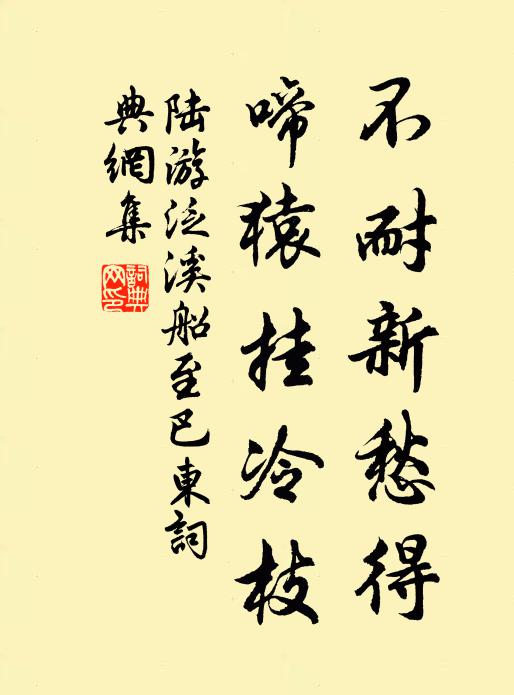 不耐新愁得
啼猿挂冷枝
陆游泛溪船至巴東詞
典網集
詞典网印